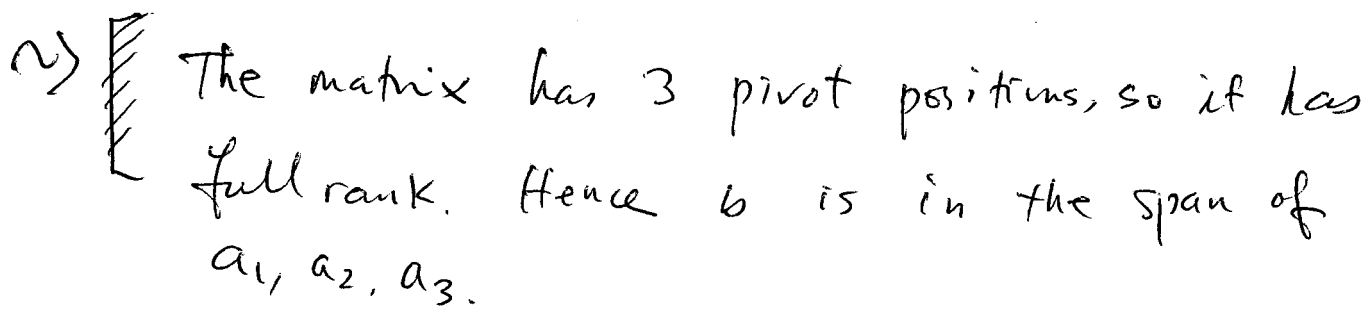 ~> The matrix has 3 pivot positions, so it has
full rank. Hence b is in the span of
a1, a2, a3.